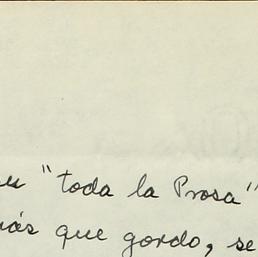 "toda la Prosa"
que gordo, se